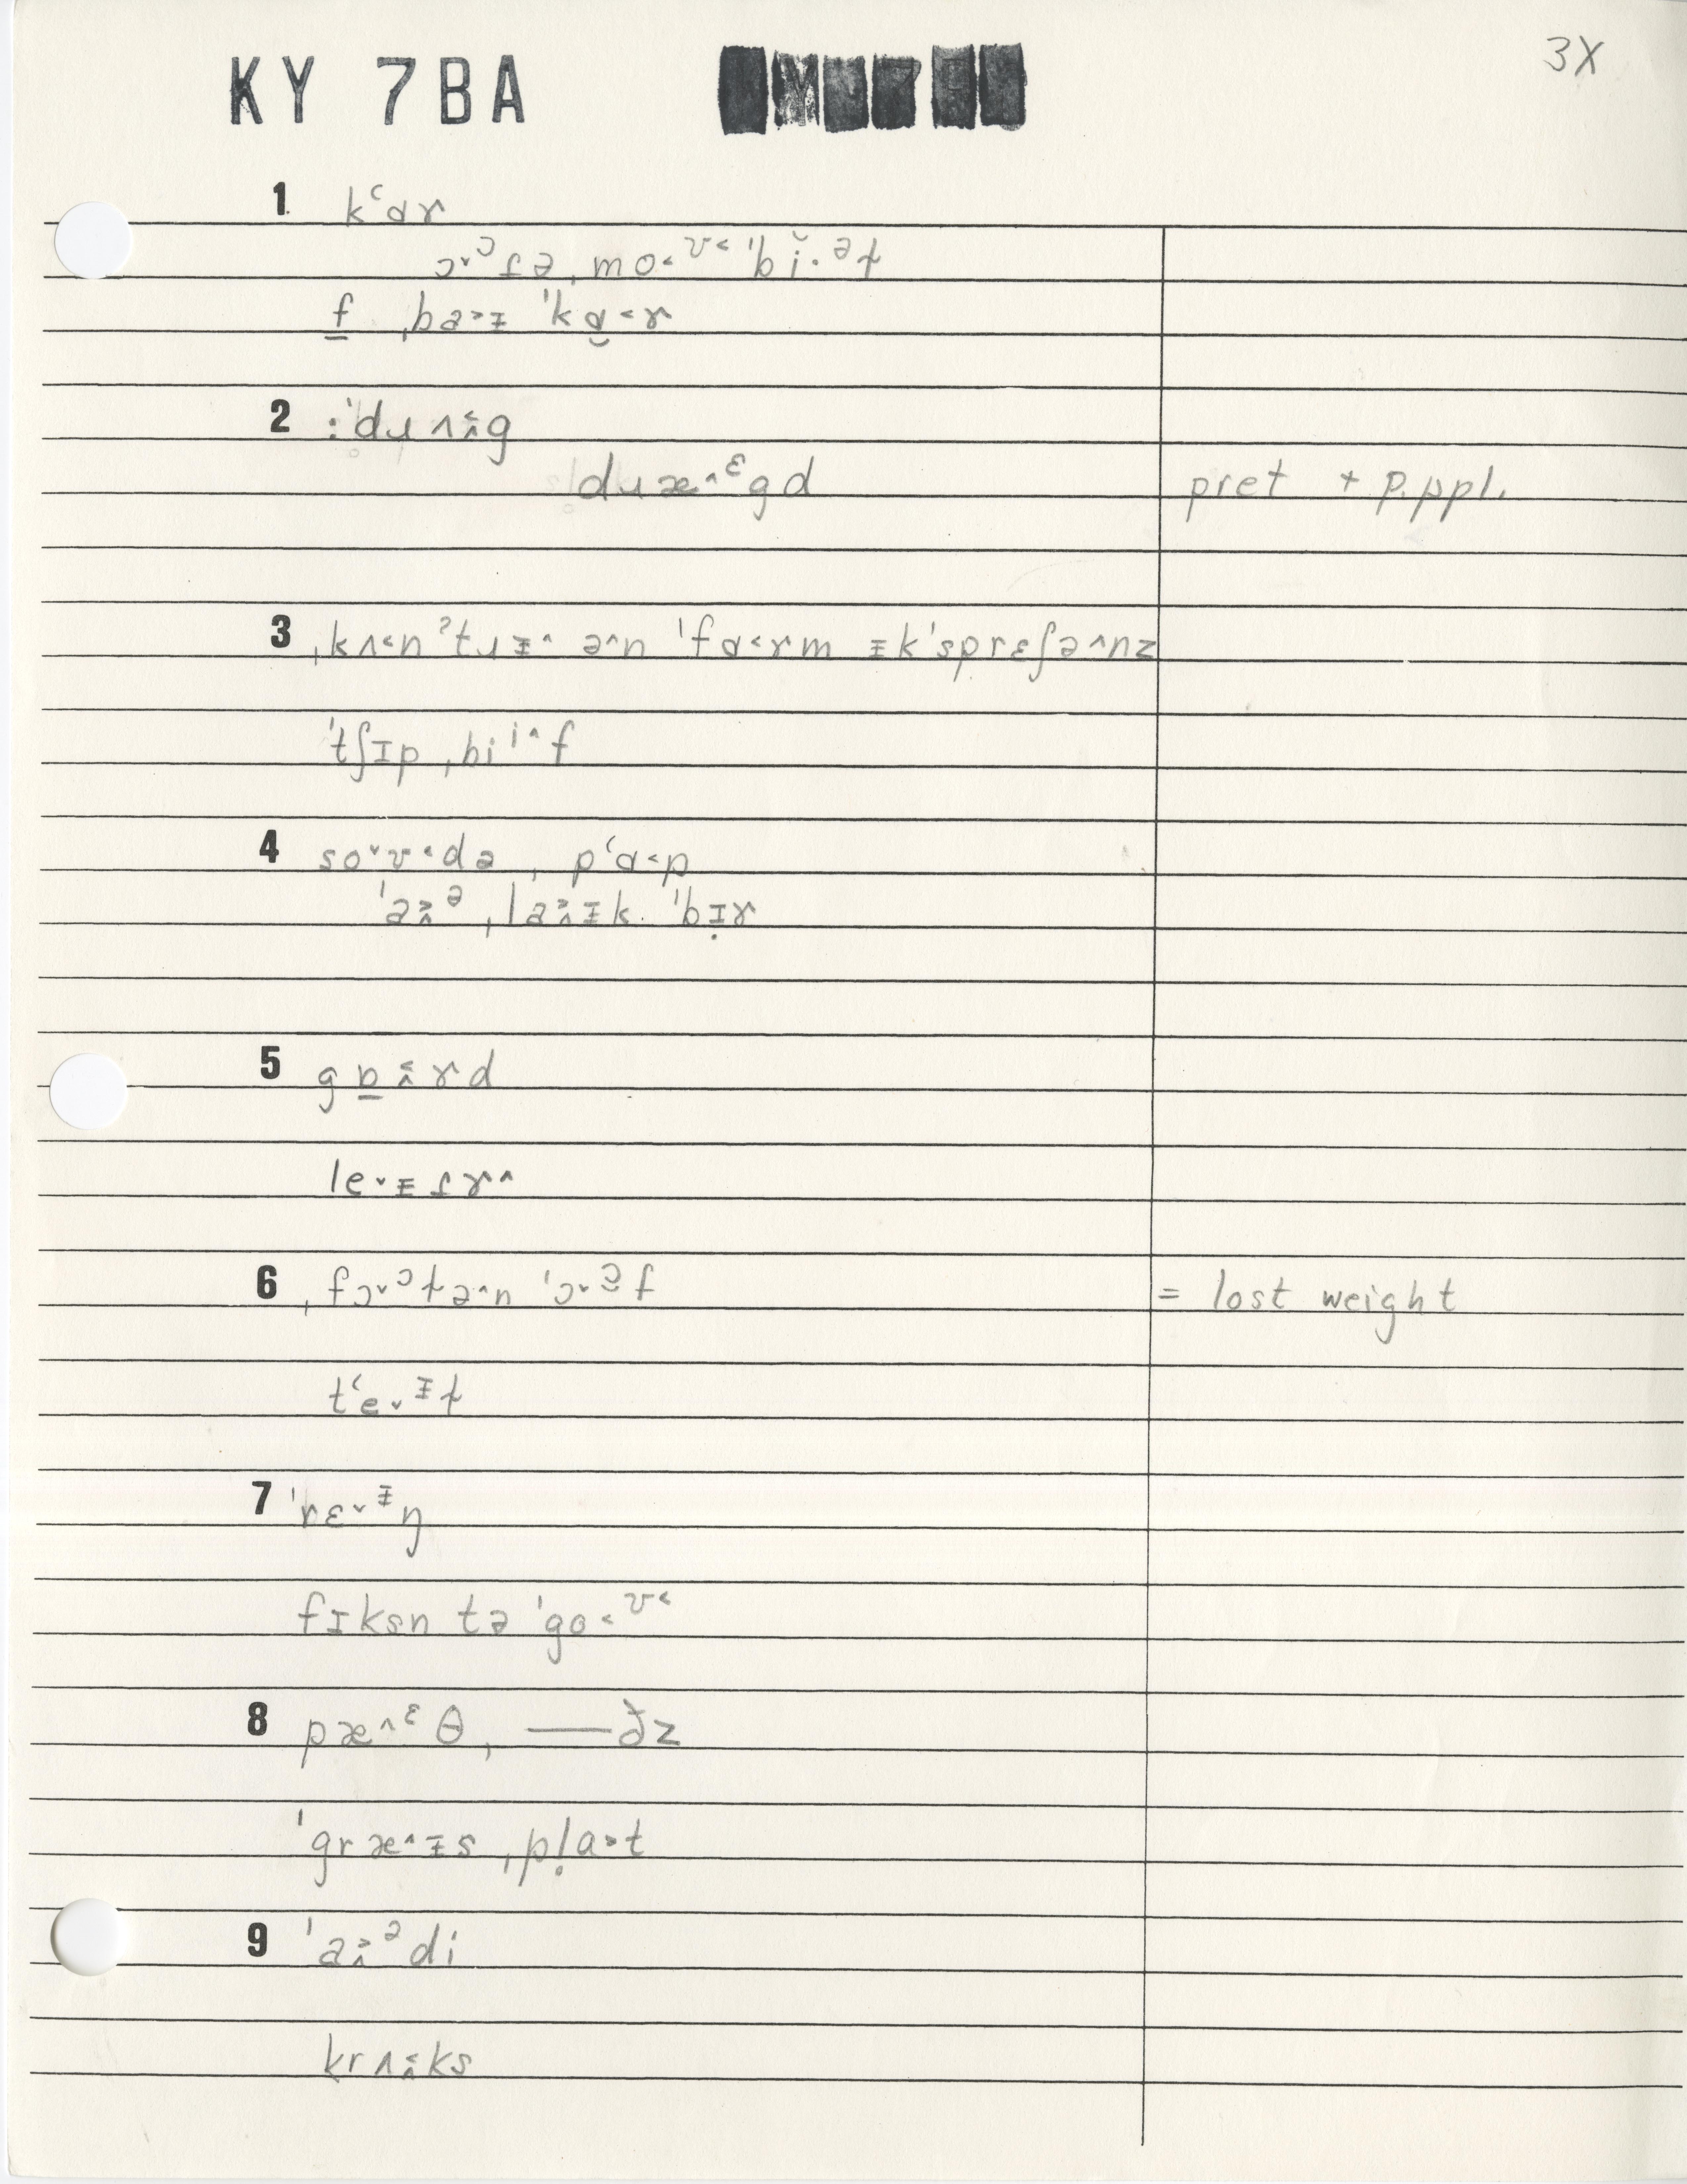 KY 7BA
3X
1 kʻɑɤ
ɔ˅ᵓɾə ˌmo˂ᶷ˂ ˈbĭ·ᵊɫ
f ˌba˃ᵻ ˈkɑ̯˂ɤ
2 :ˈdɹʌ˂̭g
dɹæ˄ᵋgd pret + p.ppl.
3 ˌkʌ˂nˀtɹᵻ˄ ə˄n ˈfɑ˂ɤm ᵻkˈsprɛʃə˄nz
ˈtʃɪp ˌbiⁱ˄f
4 so˅ʊ˂də ˌpʻɑ˂p
ˈa˃̭ᵊ ˌla˃̭ᵻk ˈbɪ̣ɤ
5 gɒ̱˂̭ɤd
le˅ᵻɾɤ˄
6 ˌfɔ˅ᵓɫə˄n ˈɔ˅ᵓ̯f = lost weight
tʻe˅ᵻɫ
7 ˈrɛ˅ᵻŋ
fɪksn tə ˈgo˂ᶷ˂
8 pæ˄ᵋθ, —ðz
ˈgræ˄ᵻs ˌpl̥a˃t
9 ˈa˃̭ᵊdi
krʌ˂̭ks